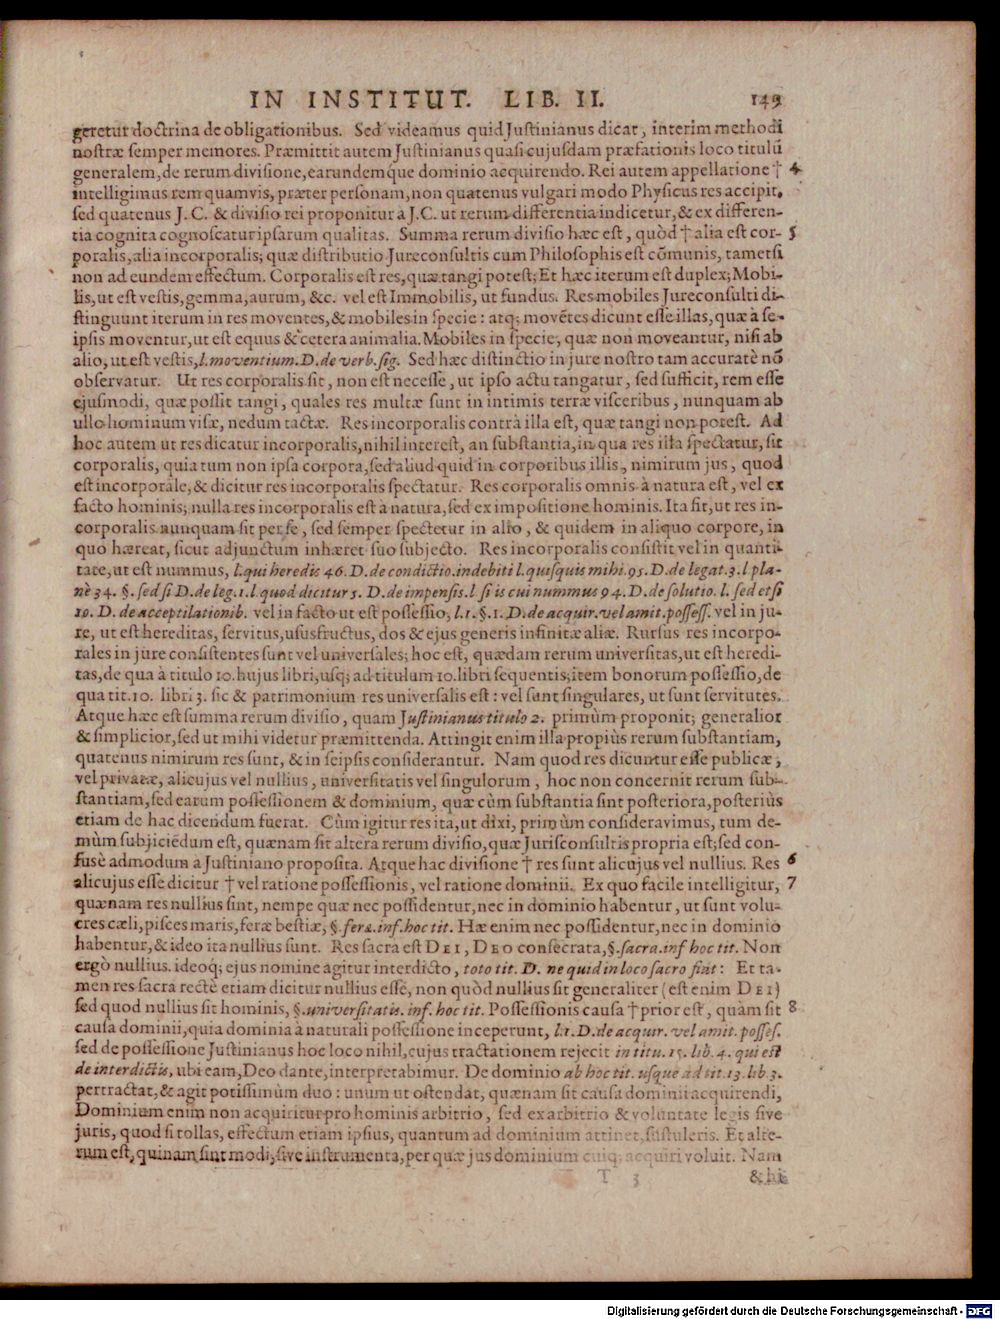 IN INSTITUT. LIB. II. 149
geretur doctrina de obligationibus. Sed videamus quid Justinianus dicat, interim methodi
nostræ semper memores. Præmittit autem Justinianus quasi cujusdam præfationis loco titulũ
generalem, de rerum divisione, earundemque dominio acquirendo. Rei autem appellatione † 4
intelligimus rem quamvis, præter personam, non quatenus vulgari modo Physicus res accipit,
sed quatenus J. C. & divisio rei proponitur à J.C. ut rerum differentia indicetur, & ex differen-
tia cognita cognoscatur ipsarum qualitas. Summa rerum divisio hæc est, quòd † alia est cor- 5
poralis, alia incorporalis; quæ distributio Jureconsultis cum Philosophis est cõmunis, tametsi
non ad eundem effectum. Corporalis est res, quæ tangi potest; Et hæc iterum est duplex; Mobi-
lis, ut est vestis, gemma, aurum, &c. vel est Immobilis, ut fundus. Res mobiles Jureconsulti di-
stinguunt iterum in res moventes, & mobiles in specie: atq; movẽtes dicunt esse illas, quæ à se-
ipsis moventur, ut est equus & cetera animalia. Mobiles in specie, quæ non moveantur, nisi ab
alio, ut est vestis, l. moventium. D. de verb. sig. Sed hæc distinctio in jure nostro tam accuratè nõ
observatur. Ut res corporalis sit, non est necesse, ut ipso actu tangatur, sed sufficit, rem esse
ejusmodi, quæ possit tangi, quales res multæ sunt in intimis terræ visceribus, nunquam ab
ullo hominum visæ, nedum tactæ. Res incorporalis contrà illa est, quæ tangi non potest. Ad
hoc autem ut res dicatur incorporalis, nihil interest, an substantia, in qua res illa spectatur, sit
corporalis, quia tum non ipsa corpora, sed aliud quid in corporibus illis, nimirum jus, quod
est incorporale, & dicitur res incorporalis spectatur. Res corporalis omnis à natura est, vel ex
facto hominis; nulla res incorporalis est à natura, sed ex impositione hominis. Ita fit, ut res in-
corporalis nunquam sit per se, sed semper spectetur in alio, & quidem in aliquo corpore, in
quo hæreat, sicut adjunctum inhæret suo subjecto. Res incorporalis consistit vel in quanti-
tate, ut est nummus, l. qui heredis 46. D. de condictio. indebiti l. quisquis mihi. 95. D. de legat. 3. l pla-
nè 34. §. sed si D. de leg. 1. l. quod dicitur 5. D. de impensis. l. si is cui nummus 94. D. de solutio. l. sed etsi
10. D. de acceptilationib. vel in facto ut est possessio, l. 1. §. 1. D. de acquir. vel amit. possess. vel in ju-
re, ut est hereditas, servitus, ususfructus, dos & ejus generis infinitæ aliæ. Rursus res incorpo-
rales in jure consistentes sunt vel universales; hoc est, quædam rerum universitas, ut est heredi-
tas, de qua à titulo 10. hujus libri, usq; ad titulum 10. libri sequentis; item bonorum possessio, de
qua tit. 10. libri 3. sic & patrimonium res universalis est: vel sunt singulares, ut sunt servitutes.
Atque hæc est summa rerum divisio, quam Justinianus titulo 2. primùm proponit; generalior
& simplicior, sed ut mihi videtur præmittenda. Attingit enim illa propiùs rerum substantiam,
quatenus nimirum res sunt, & in seipsis considerantur. Nam quod res dicuntur esse publicæ,
vel privatæ, alicujus vel nullius, universitatis vel singulorum, hoc non concernit rerum sub-
stantiam, sed earum possessionem & dominium, quæ cùm substantia sint posteriora, posteriùs
etiam de hac dicendum fuerat. Cùm igitur res ita, ut dixi, primùm consideravimus, tum de-
mùm subjiciẽdum est, quænam sit altera rerum divisio, quæ Jurisconsultis propria est; sed con-
fusè admodum a Justiniano proposita. Atque hac divisione † res sunt alicujus vel nullius. Res 6
alicujus esse dicitur † vel ratione possessionis, vel ratione dominii. Ex quo facile intelligitur, 7
quænam res nullius sint, nempe quæ nec possidentur, nec in dominio habentur, ut sunt volu-
cres cæli, pisces maris, feræ bestiæ, §. feræ. inf. hoc tit. Hæ enim nec possidentur, nec in dominio
habentur, & ideo ita nullius sunt. Res sacra est DEI, DEO consecrata, §. sacra. inf hoc tit. Non
ergò nullius. ideoq; ejus nomine agitur interdicto, toto tit. D. ne quid in loco sacro fiat: Et ta-
men res sacra rectè etiam dicitur nullius esse, non quòd nullius sit generaliter (est enim DEI)
sed quod nullius sit hominis, §. universitatis. inf. hoc tit. Possessionis causa † prior est, quàm sit 8
causa dominii, quia dominia à naturali possessione inceperunt, l. 1. D. de acquir. vel amit. posses.
sed de possessione Justinianus hoc loco nihil, cujus tractationem rejecit in titu. 15. lib. 4. qui est
de interdictis, ubi eam, Deo dante, interpretabimur. De dominio ab hoc tit. usque ad tit. 13. lib 3.
pertractat, & agit potissimùm duo: unum ut ostendat, quænam sit causa dominii acquirendi,
Dominium enim non acquiritur pro hominis arbitrio, sed ex arbitrio & voluntate legis sive
juris, quod si tollas, effectum etiam ipsius, quantum ad dominium attinet, sustuleris. Et alte-
rum est, quinam sint modi, sive instrumenta, per quæ jus dominium cuiq; acquiri voluit. Nam
T 3 & hi
Digitalisierung gefördert durch die Deutsche Forschungsgemeinschaft - DFG